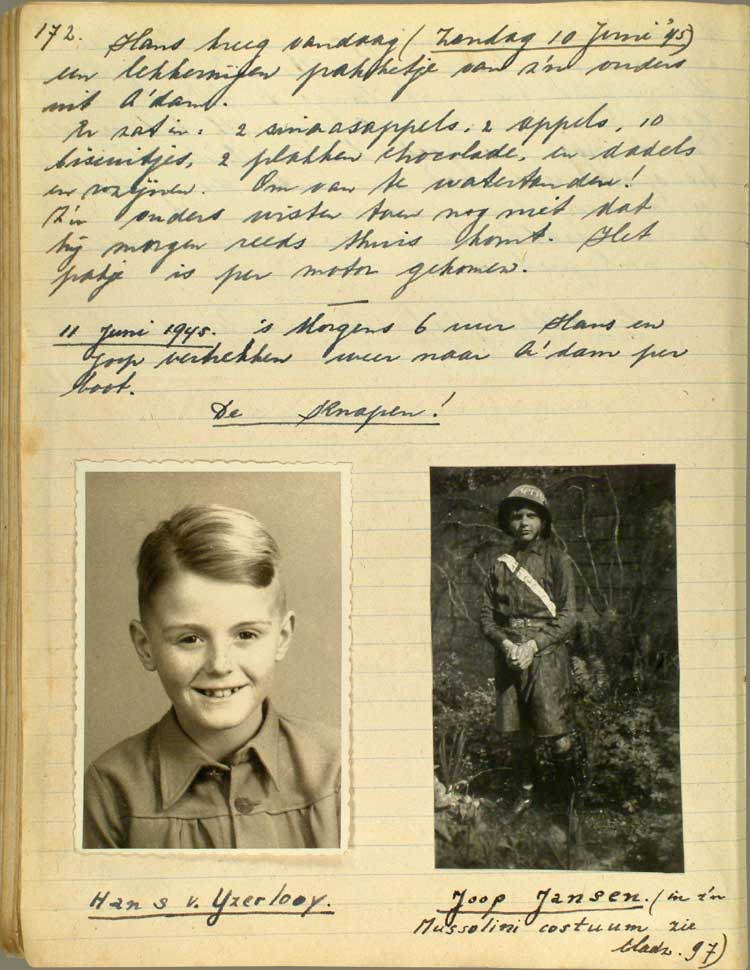 172. Hans kreeg vandaag (Zondag 10 Juni '45)
een lekkernijen pakketje van z'n ouders
uit A'dam.
Er zat in: 2 sinaasappels, 2 appels, 10
biscuitjes, 2 plakken chocolade, en dadels
en rozijnen. Om van te watertanden!
Z'n ouders wisten toen nog niet dat
hij morgen reeds thuis komt. Het
pakje is per motor gekomen.
11 Juni 1945. 's Morgens 6 uur Hans en
Joop vertrekken weer naar A'dam per
boot.
De Knapen!
Hans v. Yzerlooy.
Joop Jansen. (in z'n
Mussolini costuum zie
bladz. 97)